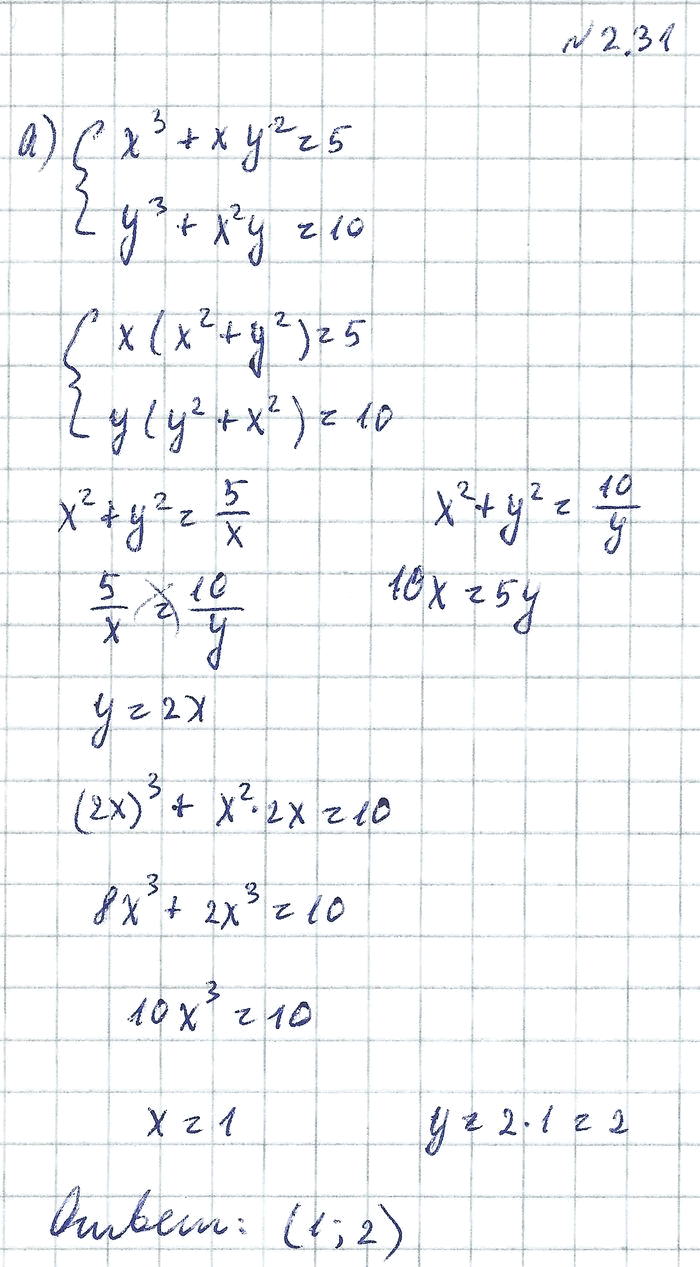 N 2.31
а) { x³ + xy² = 5
y³ + x²y = 10
{ x(x² + y²) = 5
y(y² + x²) = 10
x² + y² = 5/x    x² + y² = 10/y
5/x = 10/y    10x = 5y
y = 2x
(2x)³ + x²·2x = 10
8x³ + 2x³ = 10
10x³ = 10
x = 1    y = 2·1 = 2
Ответ: (1; 2)